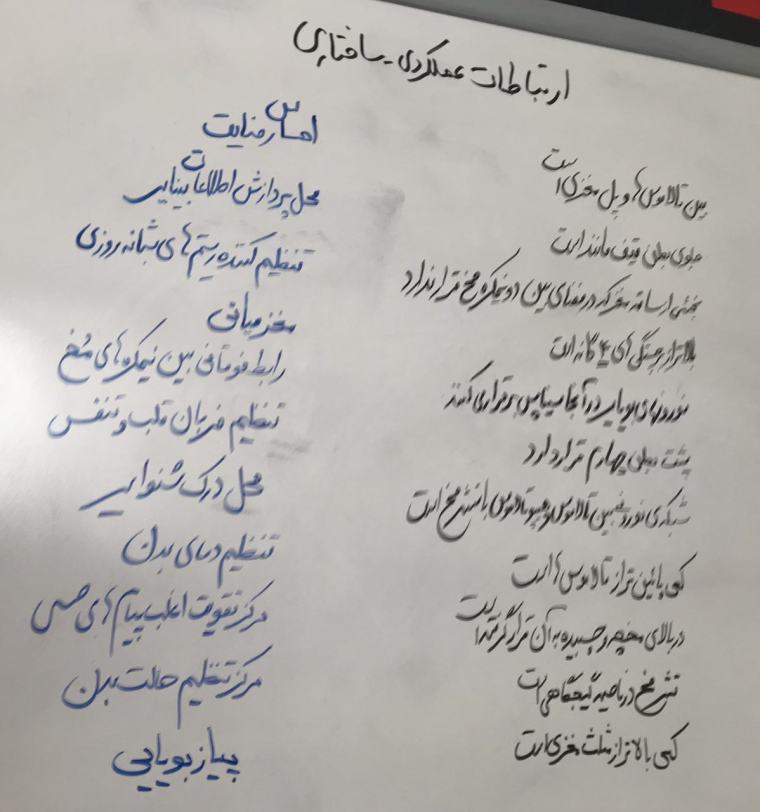 ارتباطات عملکردی - ساختاری
بین تالاموس‌ها و پل مغزی است
جلوی بطن قیف مانند است
بخشی از ساقه مغز که در فضای بین دو نیمکره مخ قرار ندارد
بالاتر از برجستگی‌های ۴ گانه است
نورون‌های بویایی در آنجا سیناپس برقرار می‌کنند
پشت بطن چهارم قرار دارد
شبکه‌ی نورونی بین تالاموس و هیپوتالاموس با قشر مخ است
کمی پائین‌تر از تالاموس‌ها است
در بالای مخچه و چسبیده به آن قرار گرفته است
قشر مخ در ناحیه گیجگاهی است
کمی بالاتر از مثلث مغزی است
احساس رضایت
محل پردازش اطلاعات بینایی
تنظیم کننده ریتم‌های شبانه روزی
مغز میانی
رابط فوقانی بین نیمکره‌های مُخ
تنظیم ضربان قلب و تنفس
محل درک شنوایی
تنظیم دمای بدن
مرکز تقویت اغلب پیام‌های حسی
مرکز تنظیم حالت بدن
پیاز بویایی